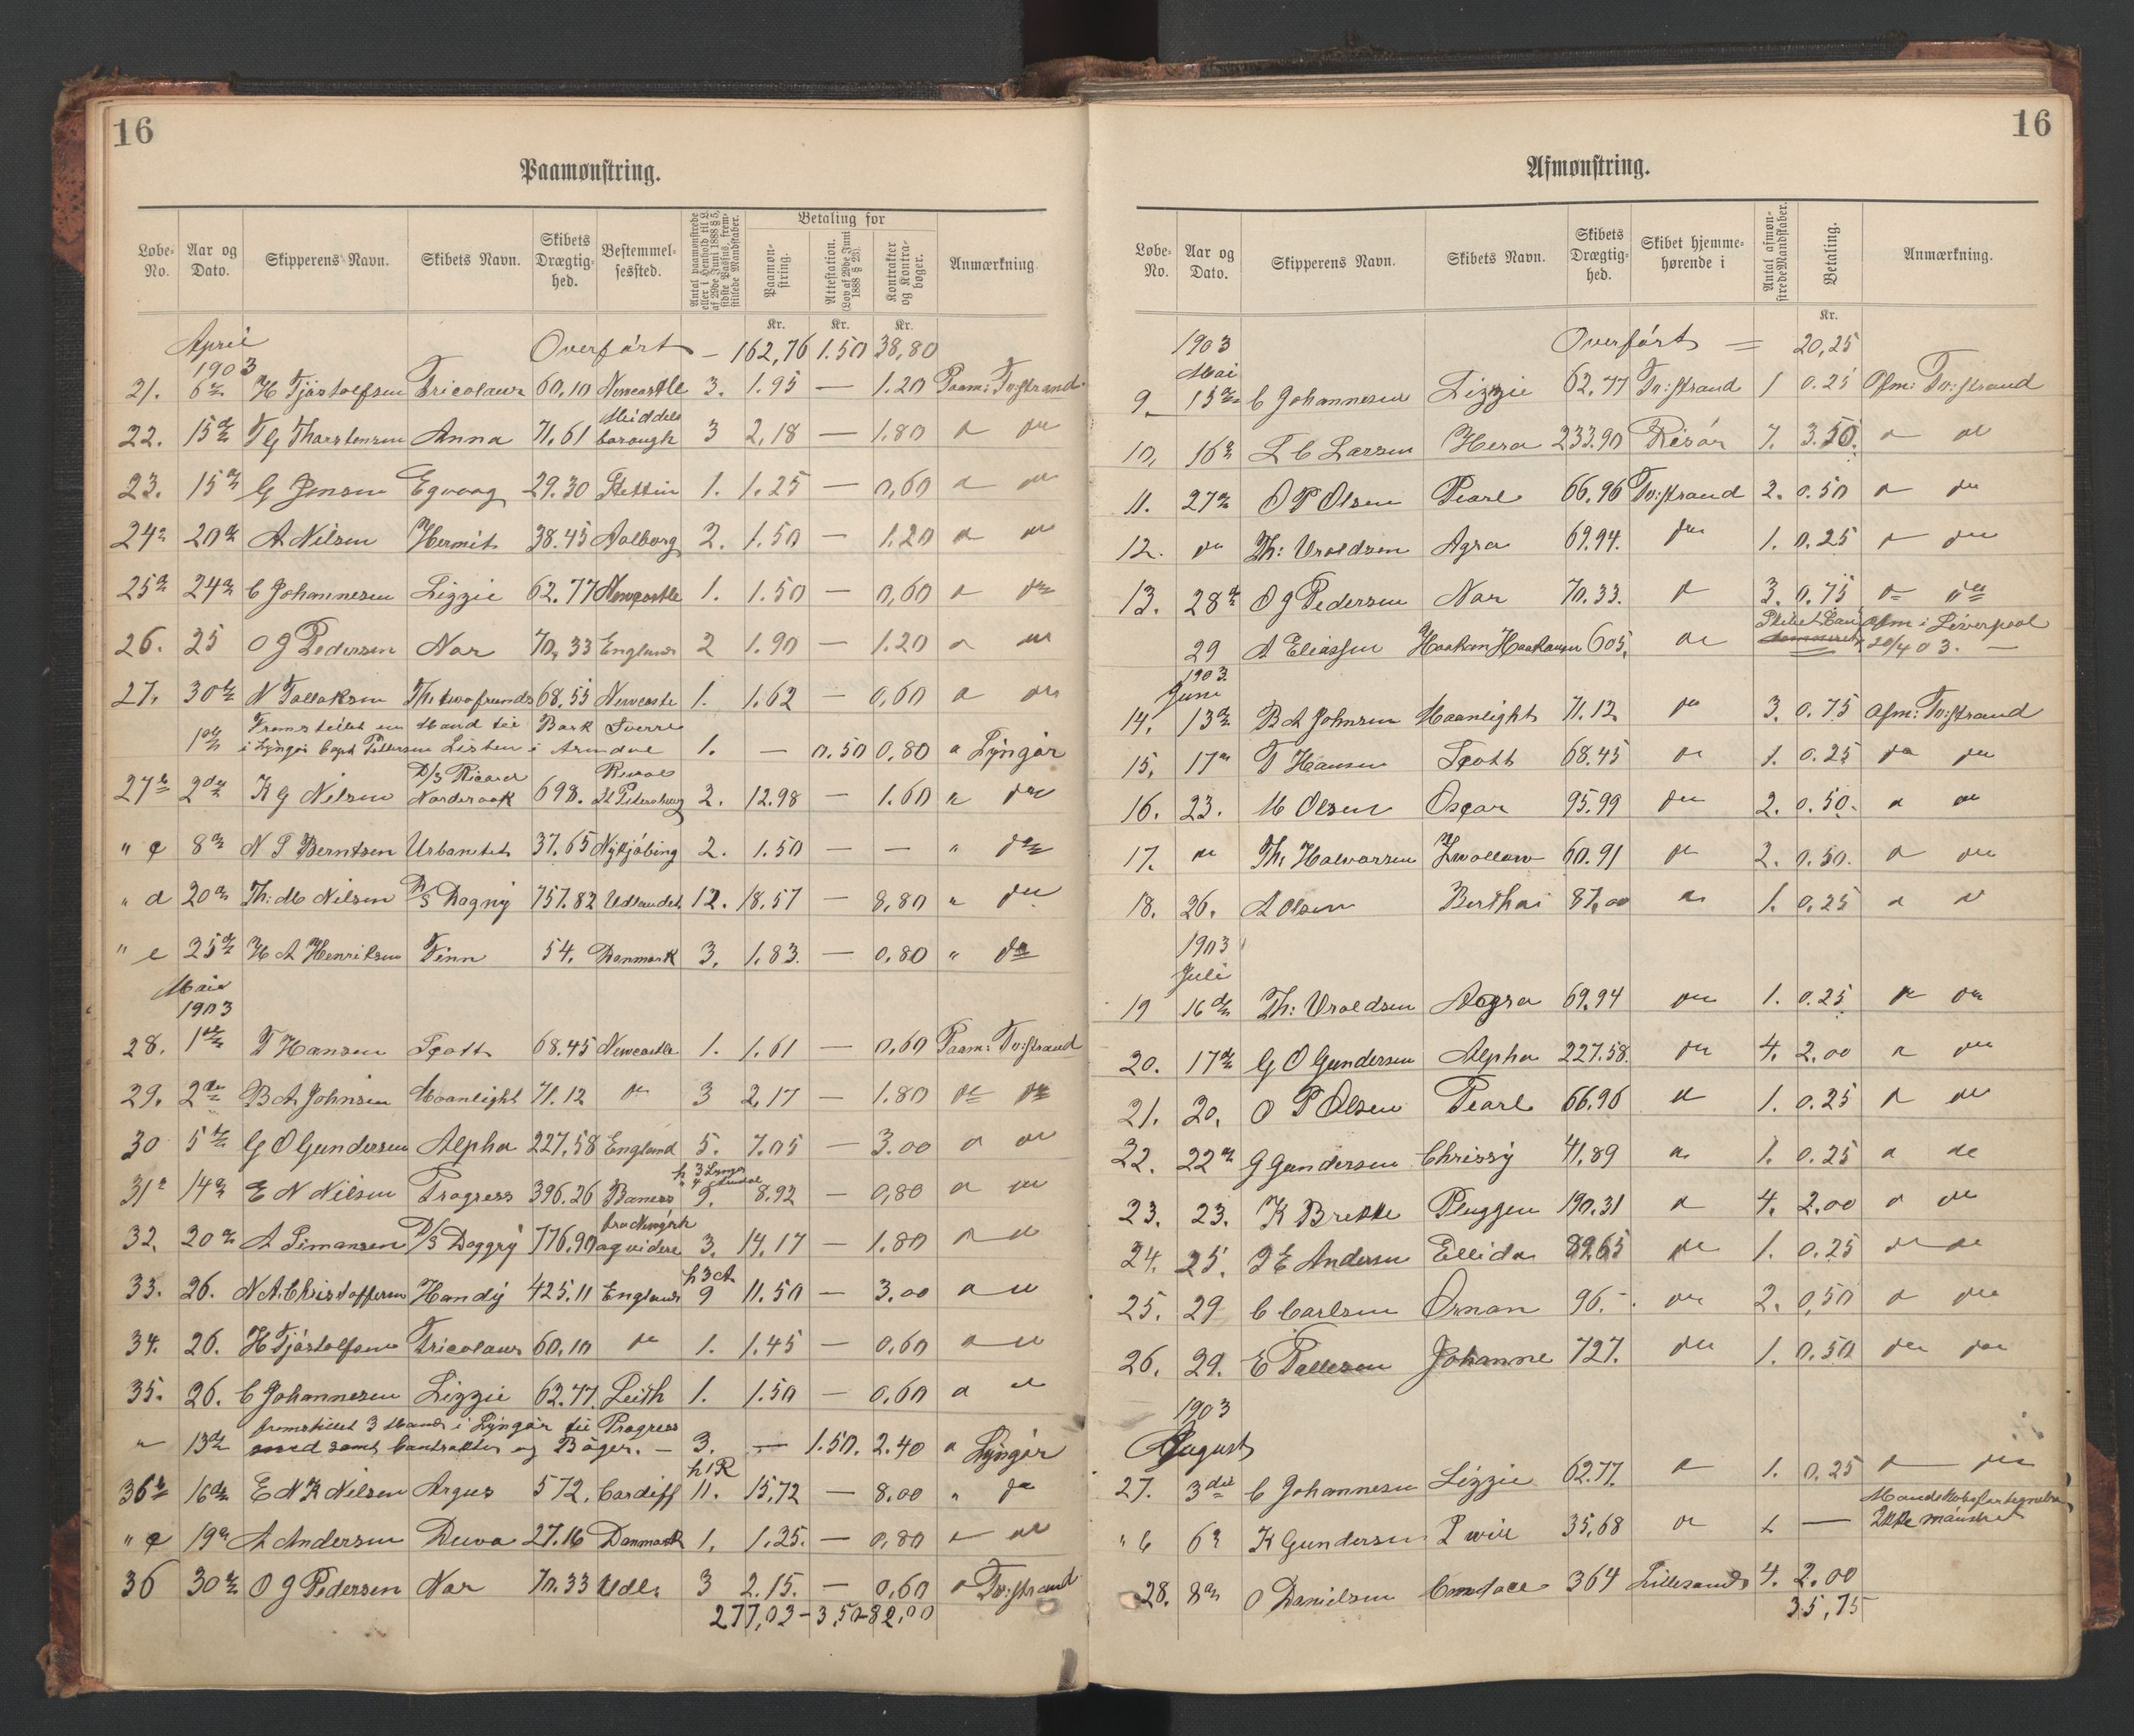 16
Paamønstring.
Løbe-No. Aar og Dato. Skipperens Navn. Skibets Navn. Skibets Drægtighed. Bestemmelsessted. Antal paamønstrede eller i Henhold til L. af 29de Juni 1888 § 5, sidste Passus, fremstillede Mandskaber. Betaling for Paamønstring. Attestation. (Lov af 29de Juni 1888 § 23). Kontrakter og Kontrabøger. Anmærkning.
Kr. Kr. Kr.
April 1903 Overført – 162,76 1.50 38,80
21. 6te H Tjøstolfsen Tricolaur 60,10 Newcastle 3. 1.95 — 1.20 Paam: Tv:strand
22. 15de T G Tharstensen Anna 71,61 Middelsborough 3 2,18 — 1.80 do do
23. 15de G Jensen Egvaag 29.30 Stettin 1. 1.25 — 0,60 do do
24. 20de A Nilsen Hermit 38.45 Aalborg 2. 1.50 — 1.20 do do
25 24de C Johannesen Lizzie 62.77 Newcastle 1. 1.50 — 0,60 do do
26. 25 O J Pedersen Nar 70,33 England 2 1.90 — 1.20 do do
27. 30te N Tallaksen The two frends 68,55 Newcaste 1. 1.62 — 0,60 do do
1ste Fremstillet en Mand til Bark Sverre
i Lyngør Capt Pettersen Listen i Arendal 1. — 0.50 0,80 do Lyngør
27b 2den K G Nilsen D/S Ricard Nordraak 698. Reval St Petersburg 2. 12.98 — 1.60 do do
" c 8de N S Berntsen Urbanitet 37.65 Nykjøbing 2. 1.50 — — " do
" d 20de Th: M Nilsen D/S Dagny 757.82 Udlandet 12. 18.57 — 8,80 " do
" e 25de H A Henriksen Finn 54. Danmark 3. 1.83. — 0,80 " do
Mai 1903
28. 1ste T Hansen Scott 68.45 Newcastle 1. 1.61 — 0,60 Paam: Tv:strand
29. 2den B A Johnsen Moonlight 71.12 do 3 2,17 — 1.80 do do
30 5te G O Gundersen Alpha 227,58 England 5. 7.05 — 3.00 do do
31 14de E N Nilsen Progress 396.26 9. 8.92 — 0,80 do do
32. 20de A Simonsen D/S Daggry 776,90 fra Newyork og videre 3. 14.17 — 1.80 do do
33. 26. N A Christoffersen Handy 425.11 England 9 11.50 — 3.00 do do
34. 26. H Tjøstolfsen Tricolaur 60,10 do 1. 1.45 — 0,60 do do
35. 26. C Johannesen Lizzie 62.77 Leith 1. 1.50 — 0,60 do do
" 13de fremstillet 3 Mand i Lyngør til Progress
med samt Contrakter og Bøger. — 3. — 1.50. 2.40 do Lyngør
36b 16de E N K Nilsen Argus 572, Cardiff 11. 15,72 — 8.00 " do
" c 19de A Andersen Duva 27.16 Danmark 1, 1.25. — 0,80 do do
36 30te O J Pedersen Nar 70.33 Udl. 3 2.15. — 0,60 do Tv:strand
277,03 – 3,50 – 82,00
16
Afmønstring.
Løbe-No. Aar og Dato. Skipperens Navn. Skibets Navn. Skibets Drægtighed. Skibet hjemmehørende i Antal afmønstrede Mandskaber. Betaling. Anmærkning.
Kr.
1903 Mai Overført = 20,25
9. 15de C Johannesen Lizzie 62,77 Tv:strand 1 0.25 Afm: Tv:strand
10, 16de L C Larsen Hera 233.90 Risør 7. 3.50. do do
11. 27de O P Olsen Pearl 66.96 Tv:strand 2. 0.50 do do
12. do Th: Uroldsen Agra 69.94. do 1. 0.25 do do
13. 28de O J Pedersen Nar 70.33. do 3. 0.75 do do
29 A Eliassen Haakon Haakansen 605, do Afm i Liverpool 20/4 03. —
1903 Juni
14, 13de B A Johnsen Moonlight 71.12 do 3. 0.75 Afm: Tv:strand
15, 17de T Hansen Scott 68.45 do 1. 0.25 do do
16. 23. M Olsen Oscar 95.99 do 2. 0.50. do do
17. do Th. Halvorsen Zwallow 60.91 do 2. 0.50. do do
18. 26. A Olsen Berthai 87,00 do 1. 0,25 do do
1903 Juli
19 16de Th: Uroldsen Aagra 69.94 do 1. 0.25 do do
20. 17de G O Gundersen Alpha 227.58. do 4. 2.00 do do
21. 20. O P Olsen Pearl 66.96 do 1. 0.25 do do
22. 22de G Gundersen Chrissy 41,89 do 1. 0.25 do do
23. 23. K Brekke Pluggen 190.31 do 4. 2.00 do do
24. 25. I E Andersen Ellida 82.65 do 1. 0.25 do do
25. 29 C Carlsen Ornan 96.– do 2. 0,50 do do
26. 29. E Pallesen Johanne 727. do 1. 0.50 do do
1903
August
27. 3die C Johannesen Lizzie 62.77. do 1. 0,25 do do
" b 6te K Gundersen I will 35,68 do 1 — Mandskabsfortegnelse Ikke mønstret
28. 8de O Danielsen Candace 364 Lillesand 4. 2.00
35,75